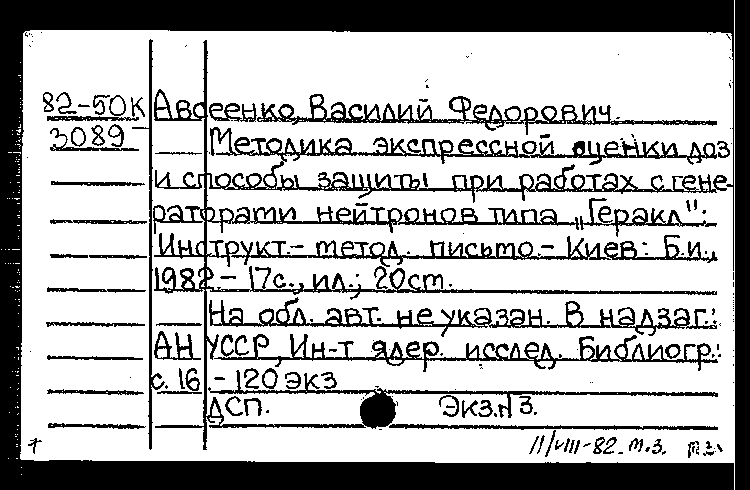 82-50К Авдеенко, Василий Федорович.
3089 Методика экспрессной оценки доз
и способы защиты при работах с гене-
раторами нейтронов типа „Геракл":
Инструкт.- метод. письмо.- Киев: Б.и.,
1982.- 17с., ил.; 20ст.
На обл. авт. не указан. В надзаг.:
АН УССР, Ин-т ядер. исслед. Библиогр.:
с. 16 - 120 экз
ДСП. Экз.N3.
11/VIII-82. м.з.